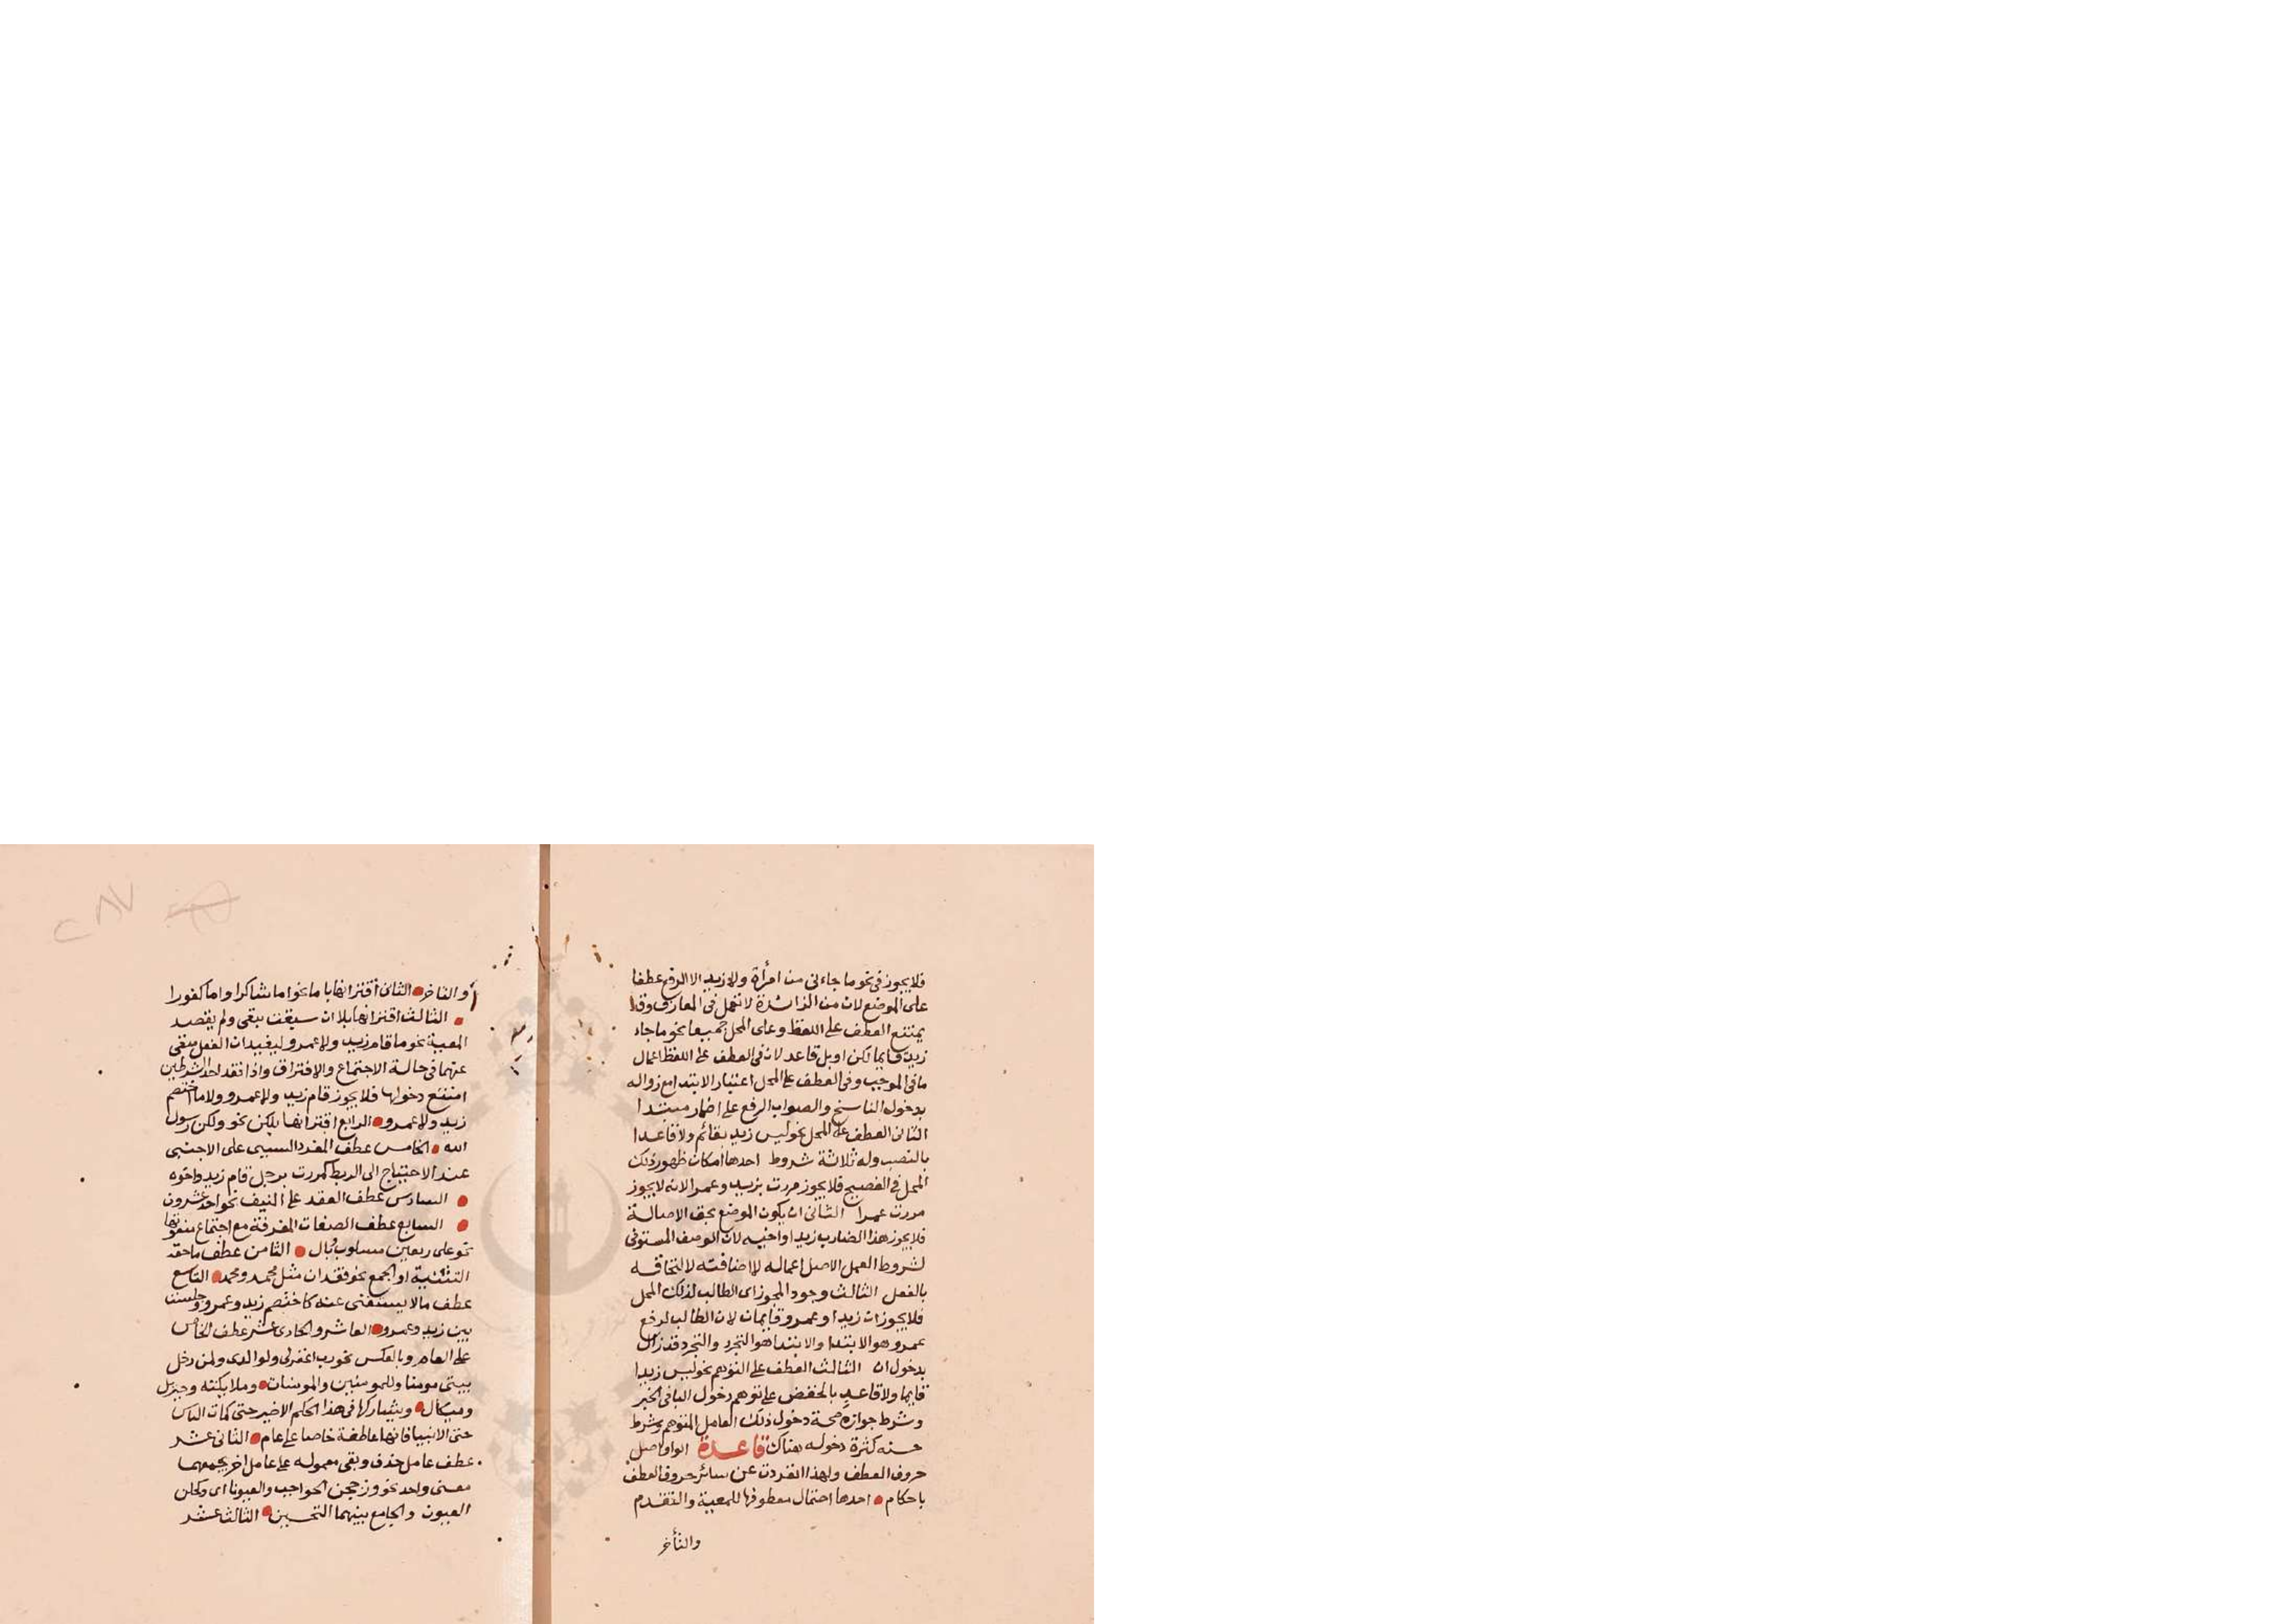 فلا يجوز فى نحو ما جاءنى من امرأة ولا زيد الا الرفع عطفا
على الموضع لان من الزائدة لا تعمل فى المعارف وقد
يمتنع العطف على اللفظ وعلى المحل جميعا نحو ما جاء
زيد قايما لكن او بل قاعد لان فى العطف على اللفظ اعمال
ما فى الموجب وفى العطف على المحل اعتبار الابتدا مع زواله
بدخول الناسخ والصواب الرفع على اضمار مبتدا
الثانى العطف على المحل نحو ليس زيد بقائم ولا قاعدا
بالنصب وله ثلاثة شروط احدها امكان ظهور ذلك
المحل فى الفصيح فلا يجوز مررت بزيد وعمرا لانه لا يجوز
مررت عمرا الثانى ان يكون الموضع بحق الاصالة
فلا يجوز هذا الضارب زيدا واخيه لان الوصف المستوفى
لشروط العمل الاصل اعماله لا اضافته لالتحاقه
بالفعل الثالث وجود المجوز اى الطالب لذلك المحل
فلا يجوز ان زيدا وعمرو قايمان لان الطالب لرفع
عمرو هو الابتدا والابتدا هو التجرد والتجرد قد زال
بدخول ان الثالث العطف على التوهم نحو ليس زيدا
قايما ولا قاعد بالخفض على توهم دخول البا فى الخبر
وشرط جوازه صحة دخول ذلك العامل المتوهم وشرط
حسنه كثرة دخوله هناك قاعدة الواو اصل
حروف العطف ولهذا انفردت عن سائر حروف العطف
باحكام احدها احتمال معطوفها للمعية والتقدم
والتأخر
٢٨٧
أو التاخر الثانى أقترانها باما نحو اما شاكرا واما كفورا
الثالث اقترانها بلا ان سبقت بنفى ولم يقصد
المعية نحو ما قام زيد ولا عمرو ليفيد ان الفعل منفى
عنهما فى حالة الاجتماع والافتراق واذا فقد احد الشرطين
امتنع دخولها فلا يجوز قام زيد ولا عمرو ولا ما اختصم
زيد ولا عمرو الرابع اقترانها بلكن نحو ولكن رسول
الله الخامس عطف المفرد السببى على الاجنبى
عند الاحتياج الى الربط كمررت برجل قام زيد واخوه
السادس عطف العقد على النيف نحو احد وعشرون
السابع عطف الصفات المفرقة مع اجتماع منعوتها
نحو على ربعين مسلوب وبال الثامن عطف ما حقه
التثنية او الجمع نحو فقدان مثل محمد ومحمد التاسع
عطف ما لا يستغنى عنه كاختصم زيد وعمرو وجلست
بين زيد وعمرو العاشر والحادى عشر عطف الخاص
على العام وبالعكس نحو رب اغفر لى ولوالدى ولمن دخل
بيتى مومنا وللمومنين والمومنات وملايكته وجبريل
وميكال ويشاركها فى هذا الحكم الاخير حتى كمات الناس
حتى الانبيا فانها عاطفة خاصا على عام الثانى عشر
عطف عامل حذف وبقى معموله على عامل اخر يجمعهما
معنى واحد نحو وزججن الحواجب والعيونا اى وكحلن
العيون والجامع بينهما التحسين الثالث عشر